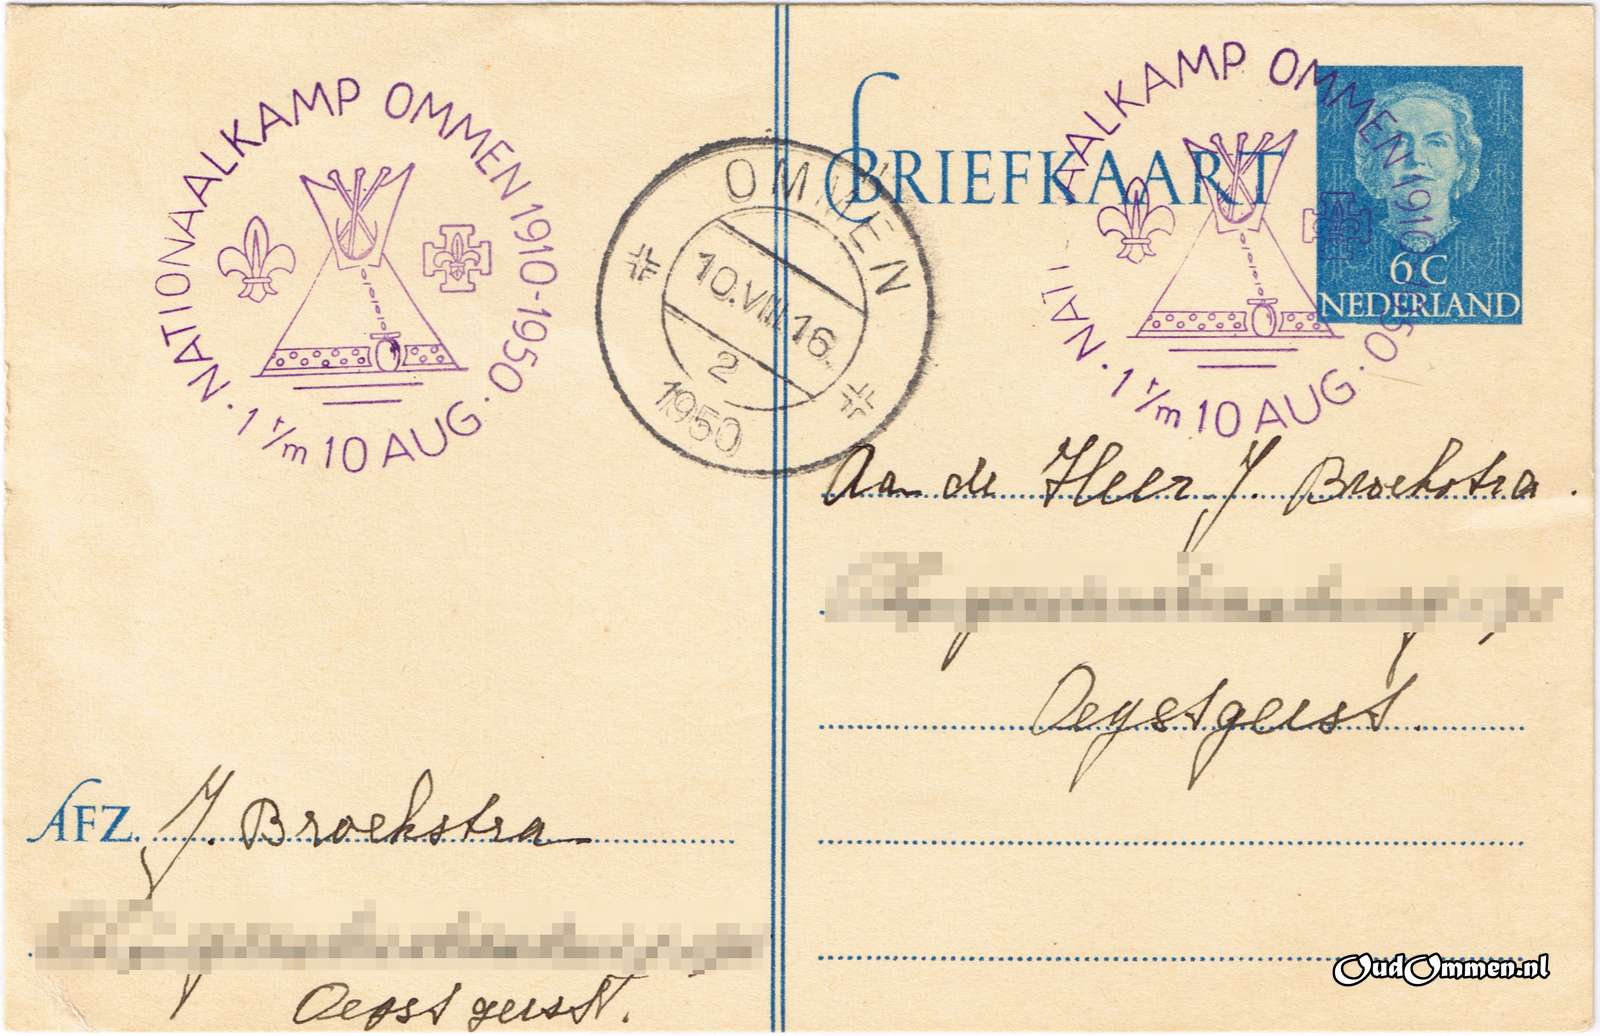 NATIONAALKAMP OMMEN 1910-1950 · 1 t/m 10 AUG. ·
OMMEN
10.VIII.16.
2
1950
BRIEFKAART
NATI AALKAMP OMMEN 1910-1950 · 1 t/m 10 AUG. ·
6 C
NEDERLAND
Aan de Heer J. Broekstra.
Oegstgeest.
AFZ. J. Broekstra
Oegstgeest.
OudOmmen.nl